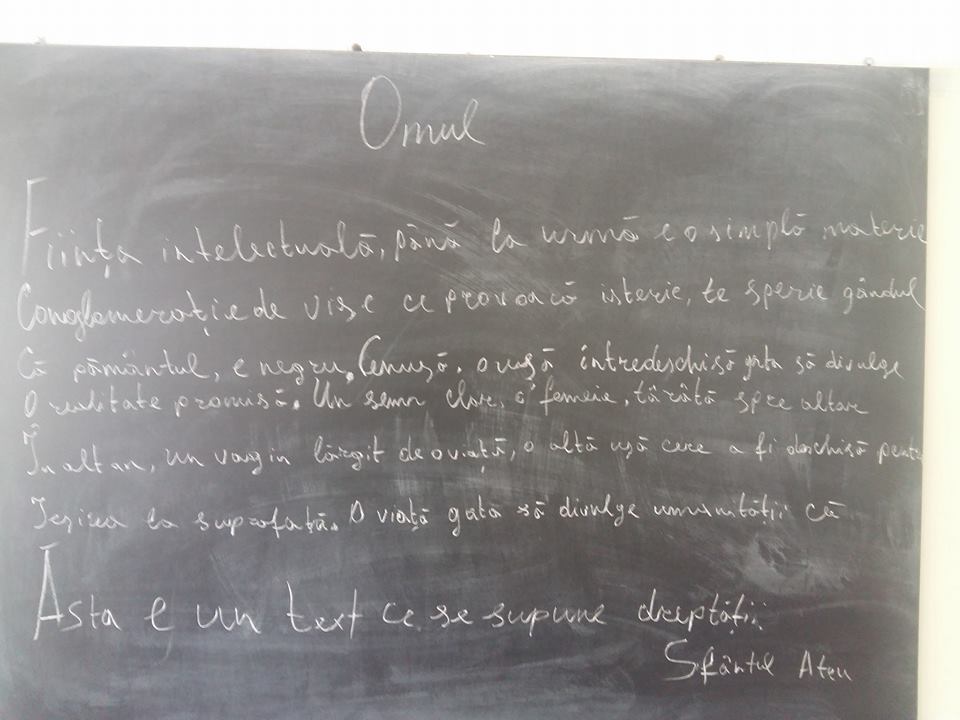 Omul
Ființa intelectuală, până la urmă e o simplă materie
Conglomerație de vise ce provoacă isterie, te sperie gândul
Că pământul, e negru. Cenușă. o ușă întredeschisă gata să divulge
O realitate promisă. Un semn clar, o femeie, târâtă spre altar
În altar, un vagin lărgit de o viață, o altă ușă cere a fi deschisă pentru
Ieșirea la suprafață. O viață gată să divulge umanității că
Asta e un text ce se supune dreptății
Sfântul Ateu